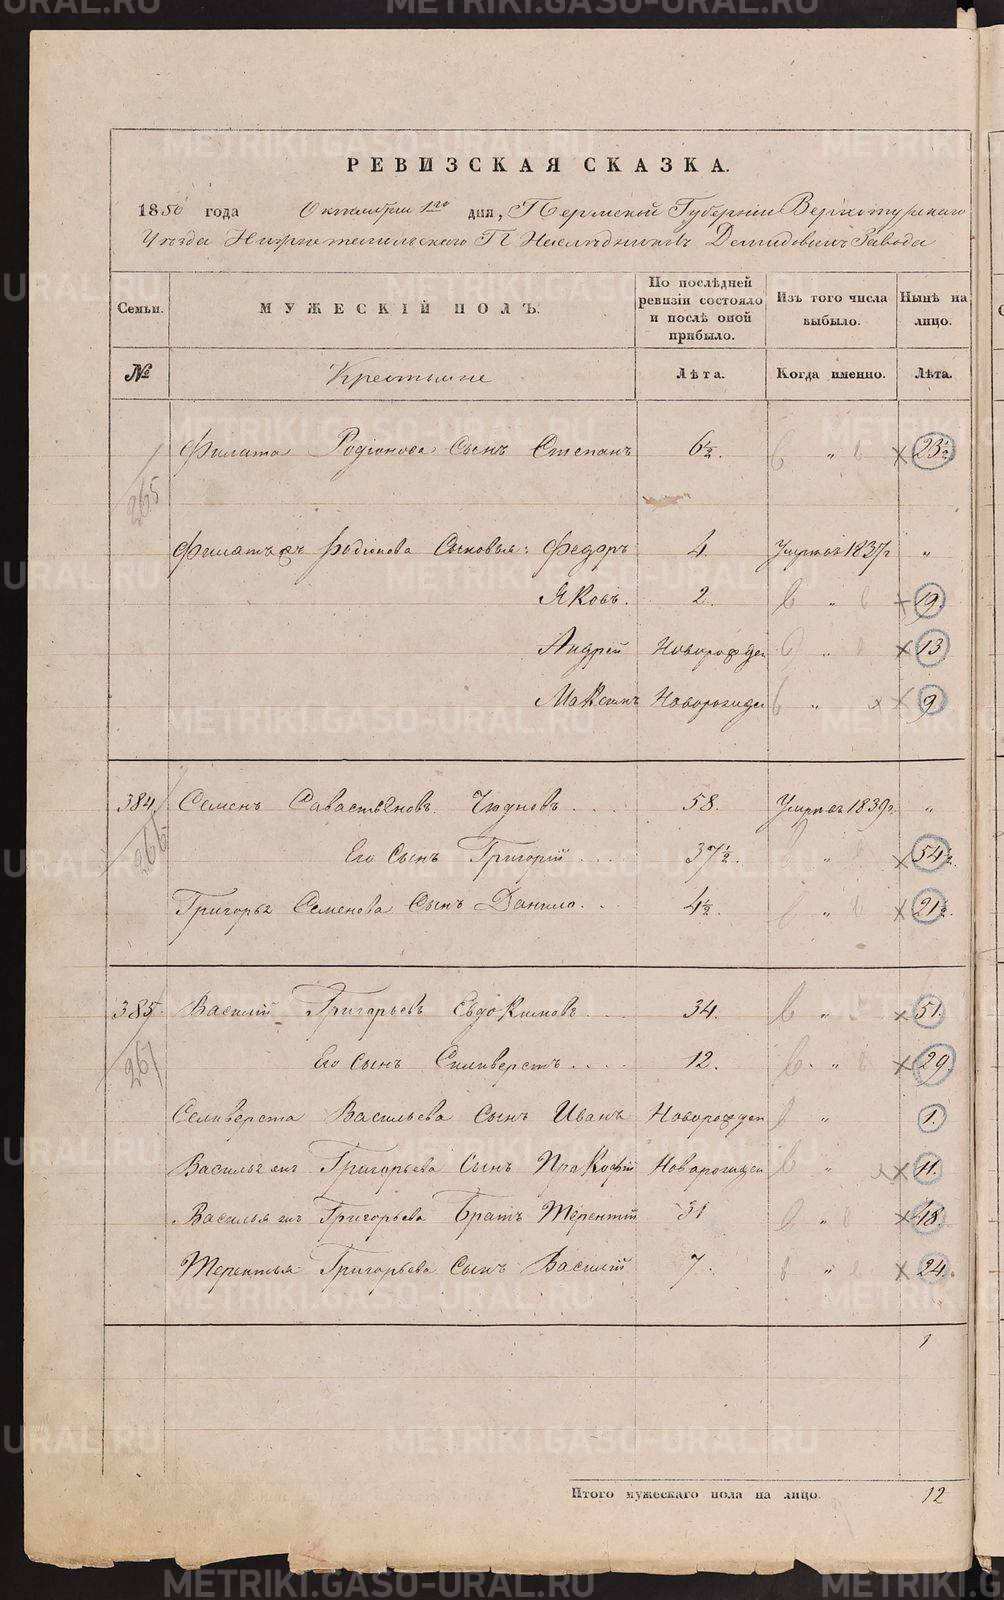 РЕВИЗСКАЯ СКАЗКА.
1850 года Октября 1го дня, Пермской Губернии Верхотурскаго
Уезда Нижнетагильскаго Гг Наследниковъ Демидовыхъ Завода
Семьи. МУЖЕСКІЙ ПОЛЪ. По послѣдней ревизіи состояло и послѣ оной прибыло. Изъ того числа выбыло. Нынѣ на лицо.
№ Крестьяне Лѣта. Когда именно. Лѣта.
265 Филата Родіонова Сынъ Степанъ 6½. " × 23½
Родіонова Сыновья: Федоръ 4. Умре въ 1837г "
Яковъ. 2. " × 19.
Андрей Новорожден " × 13
Максимъ Новорожден " × × 9
384 Семенъ Савастьяновъ Чюдновъ 58. Умре въ 1839г. "
266 Его Сынъ Григорій 37½. " × 54½
Григорья Семенова Сынъ Данило. 4½. " × 21½.
385. Василій Григорьевъ Евдокимовъ 34. " × 51.
267 Его Сынъ Силиверстъ 12. " × 29.
Селиверста Васильева Сынъ Иванъ Новорожден " 1.
Григорьева Сынъ Прокофій Новорожден " × 11.
Григорьева Братъ Терентій 31 " × 48.
Терентья Григорьева Сынъ Василій 7. " × 24.
1
Итого мужескаго пола на лицо. 12
METRIKI.GASO-URAL.RU